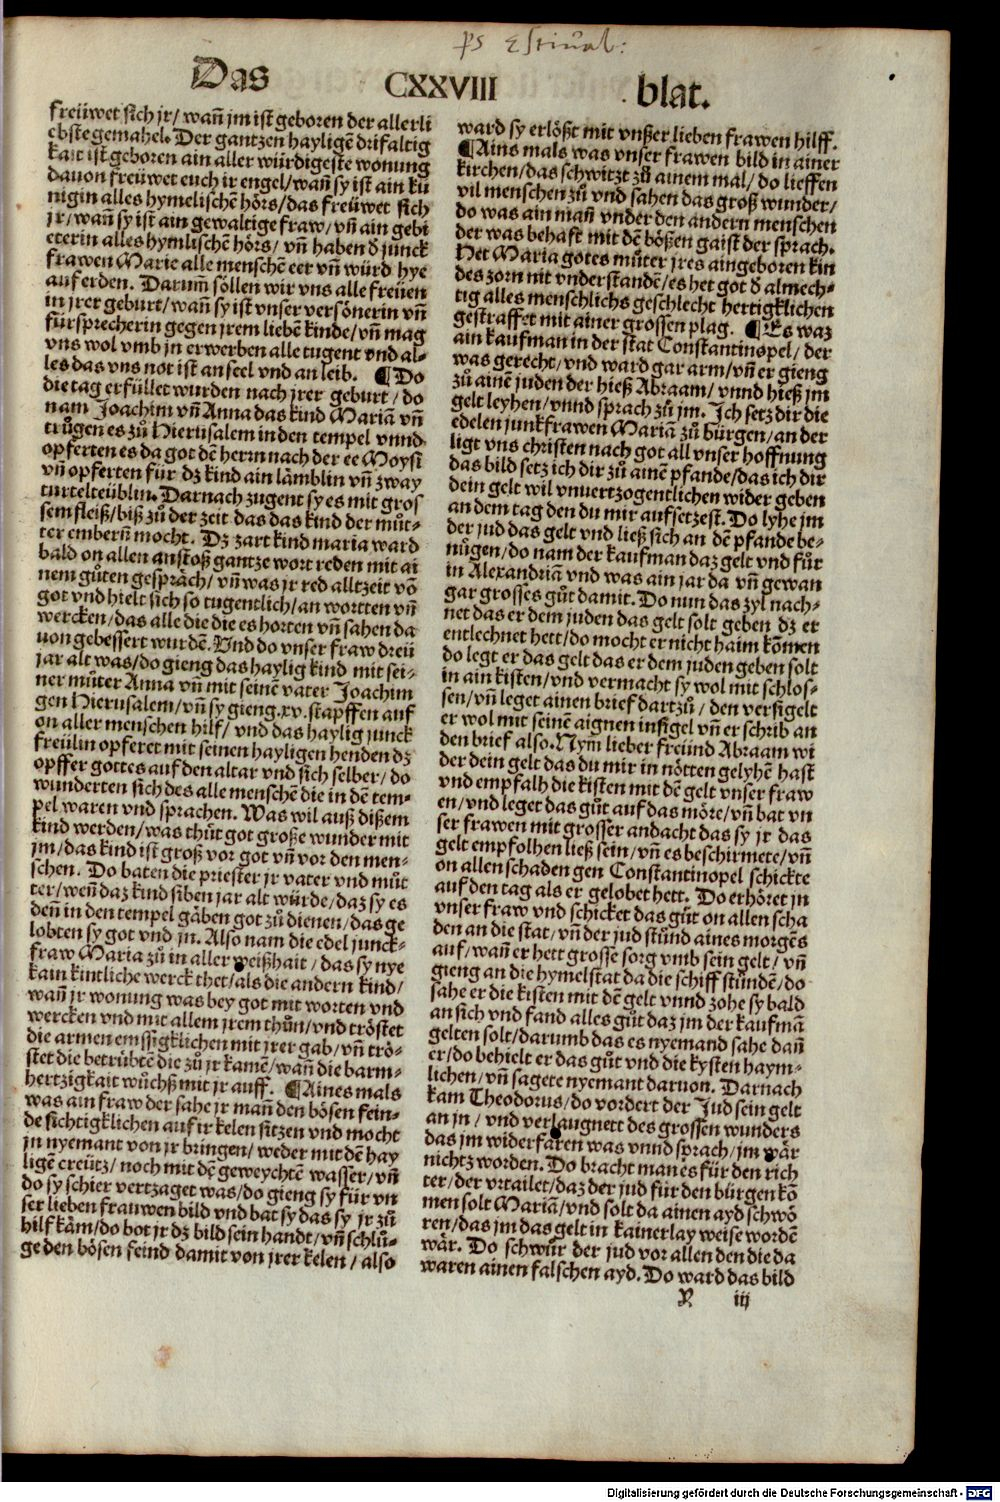 Das CXXVIII blat.
freüwet sich jr/ wañ jm ist geboren der allerli
ebste gemahel. Der gantzen hayligẽ drifaltig
kait ist geboren ain aller würdigeste wonung
dauon freüwet euch ir engel/wañ sy ist ain kü
nigin alles hymelischẽ hörs/das freüwet sich
jr/wañ sy ist ain gewaltige fraw/vñ ain gebi
eterin alles hymlischẽ hörs/ vñ haben ð junck
frawen Marie alle menschẽ eer vñ würd hye
auf erden. Darum̃ söllen wir vns alle freüen
in jrer geburt/wañ sy ist vnser versönerin vñ
fürsprecherin gegen jrem liebẽ kinde/vñ mag
vns wol vmb jn erwerben alle tugent vnd al-
les das vns not ist an seel vnd an leib. ¶Do
die tag erfüllet wurden nach jrer geburt/do
nam Joachim vñ Anna das kind Mariã vñ
trůgen es zů Hierusalem in den tempel vnnd
opferten es da got dẽ herrn nach der ee Moysi
vñ opferten für dz kind ain lämblin vñ zway
turtelteüblin. Darnach zugent sy es mit gros
sem fleiß/biß zů der zeit das das kind der můt-
ter embern̄ mocht. Dz zart kind maria ward
bald on allen anstoß gantze wort reden mit ai
nem gůten gespräch/vñ was jr red alltzeit võ
got vnd hielt sich so tugentlich/an wortten vñ
wercken/das alle die die es horten vñ sahen da
uon gebessert wurdẽ. Vnd do vnser fraw dreü
jar alt was/do gieng das haylig kind mit sei-
ner můter Anna vñ mit seinẽ vater Joachim
gen Hierusalem/vñ sy gieng.xv.stapffen auf
on aller menschen hilf/ vnd das haylig junck
freülin opferet mit seinen hayligen henden dz
opffer gottes auf den altar vnd sich selber/do
wunderten sich des alle menschẽ die in dẽ tem-
pel waren vnd sprachen. Was wil auß dißem
kind werden/was thůt got große wunder mit
jm/das kind ist groß vor got vñ vor den men-
schen. Do baten die priester jr vater vnd můt
ter/weñ daz kind siben jar alt würde/daz sy es
deñ in den tempel gäben got zů dienen/das ge
lobten sy got vnd jn. Also nam die edel junck-
fraw Maria zů in aller weißhait/das sy nye
kain kintliche werck thet/als die andern kind/
wañ jr wonung was bey got mit worten vnd
wercken vnd mit allem jrem thůn/vnd tröstet
die armen emssigklichen mit jrer gab/vñ trö-
stet die betrübtẽ die zů jr kamẽ/wañ die barm-
hertzigkait wůchß mit jr auff. ¶Aines mals
was ain fraw der sahe jr mañ den bösen fein-
de sichtigklichen auf ir kelen sitzen vnd mocht
jn nyemant von jr bringen/weder mit dẽ hay
ligẽ creütz/noch mit dẽ geweychtẽ wasser/vñ
do sy schier vertzaget was/do gieng sy für vn
ser lieben frauwen bild vnd bat sy das sy jr zů
hilf käm/do bot jr dz bild sein handt/vñ schlů-
ge den bösen feind damit von jrer kelen/also
ward sy erlößt mit vnßer lieben frawen hilff.
¶Ains mals was vnser frawen bild in ainer
kirchen/das schwitzt zů ainem mal/do lieffen
vil menschen zů vnd sahen das groß wunder/
do was ain mañ vnder den andern menschen
der was behaft mit dẽ bößen gaist der sprach.
Het Maria gotes můter jres aingeboren kin
des zorn nit vnderstandẽ/es het got ð almech-
tig alles menschlichs geschlecht hertigklichen
gestraffet mit ainer grossen plag. ¶Es waz
ain kaufman in der stat Constantinopel/der
was gerecht/vnd ward gar arm/vñ er gieng
zů ainẽ juden der hieß Abraam/vnnd hieß jm
gelt leyhen/vnnd sprach zů jm. Ich setz dir die
edelen junkfrawen Mariã zů bürgen/an der
ligt vns christen nach got all vnser hoffnung
das bild setz ich dir zů ainẽ pfande/das ich dir
dein gelt wil vnuertzogentlichen wider geben
an dem tag den du mir aufsetzest. Do lyhe jm
der jud das gelt vnd ließ sich an dẽ pfande be-
nůgen/do nam der kaufman daz gelt vnd fůr
in Alexandriã vnd was ain jar da vñ gewan
gar grosses gůt damit. Do nun das zyl nach-
net das er dem juden das gelt solt geben dz er
entlechnet hett/do mocht er nicht haim kõmen
do legt er das gelt das er dem juden geben solt
in ain kisten/vnd vermacht sy wol mit schlos-
sen/vñ leget ainen brief dartzů/den versigelt
er wol mit seinẽ aignen insigel vñ er schrib an
den brief also. Nym̃ lieber freünd Abraam wi
der dein gelt das du mir in nötten gelyhẽ hast
vnd empfalh die kisten mit dẽ gelt vnser fraw
en/vnd leget das gůt auf das möre/vñ bat vn
ser frawen mit grosser andacht das sy jr das
gelt empfolhen ließ sein/vñ es beschirmete/vñ
on allen schaden gen Constantinopel schickte
auf den tag als er gelobet hett. Do erhöret jn
vnser fraw vnd schicket das gůt on allen scha
den an die stat/vñ der jud stůnd aines morgẽs
auf/wañ er hett grosse sorg vmb sein gelt/vñ
gieng an die hymelstat da die schiff stůndẽ/do
sahe er die kisten mit dẽ gelt vnnd zohe sy bald
an sich vnd fand alles gůt daz jm der kaufmã
gelten solt/darumb das es nyemand sahe dañ
er/do behielt er das gůt vnd die kysten haym-
lichen/vñ sagete nyemant daruon. Darnach
kam Theodorus/do vordert der Jud sein gelt
an jn/vnd verlaugnett des grossen wunders
das jm widerfaren was vnnd sprach/jm wär
nichtz worden. Do bracht man es für den rich
ter/der vrtailet/daz der jud für den bürgen kõ
men solt Mariã/vnd solt da ainen ayd schwö
ren/das jm das gelt in kainerlay weise wordẽ
wär. Do schwůr der jud vor allen den die da
waren ainen falschen ayd. Do ward das bild
iij
Digitalisierung gefördert durch die Deutsche Forschungsgemeinschaft - DFG